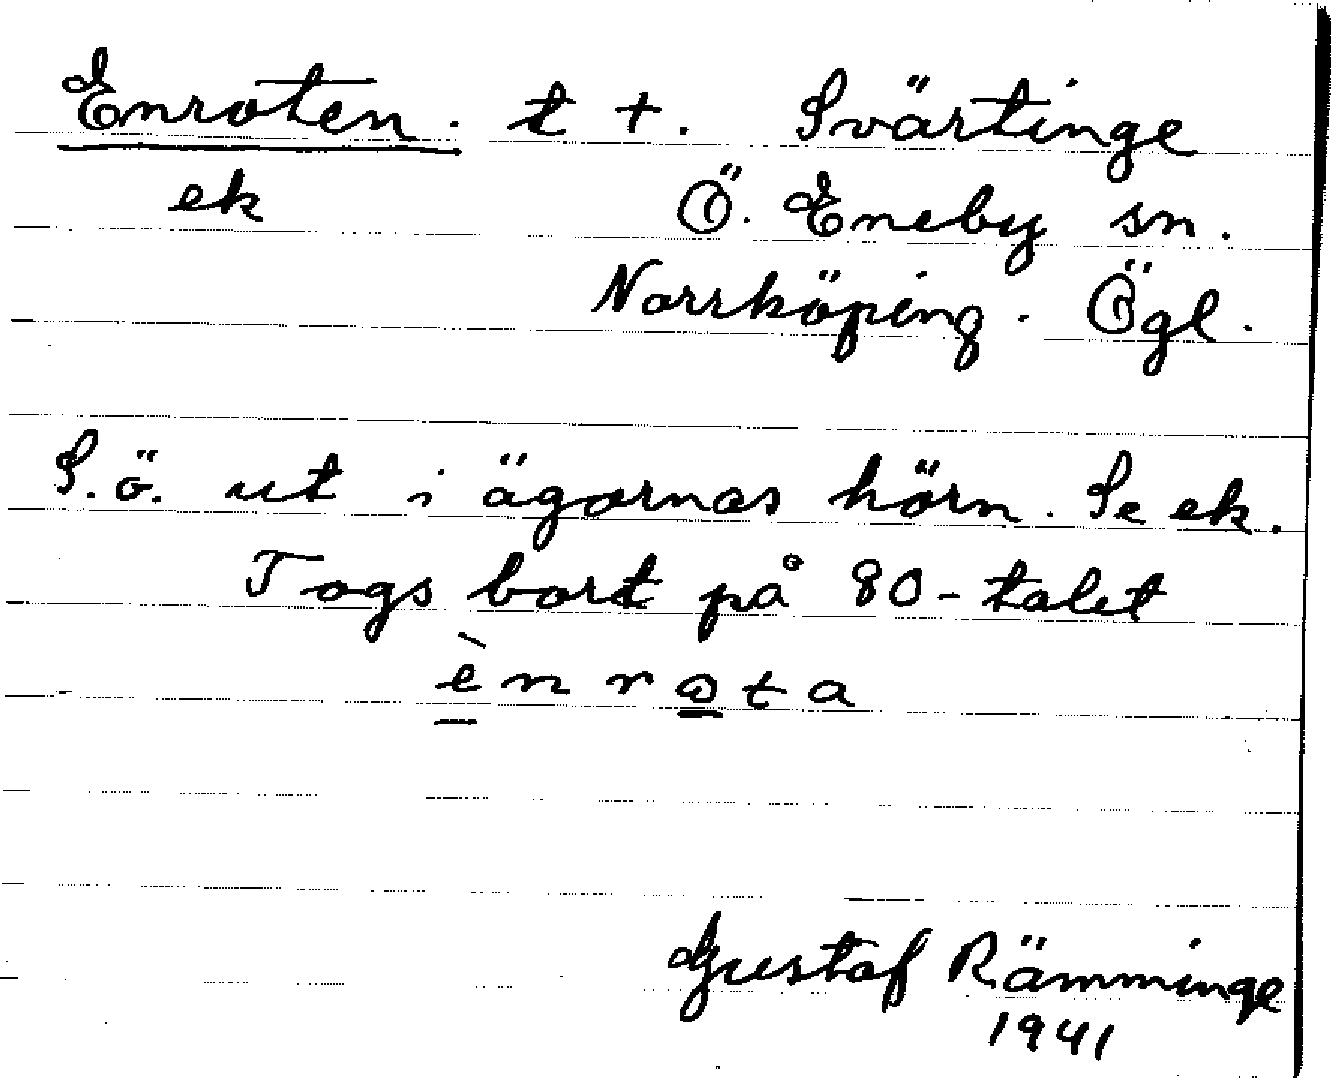 Enroten. t +. Svärtinge
ek Ö. Eneby sn.
Norrköping. Ögl.
S.ö. ut i ägornas hörn. Se ek.
Togs bort på 80-talet
ènrota
Gustaf Rämminge
1941